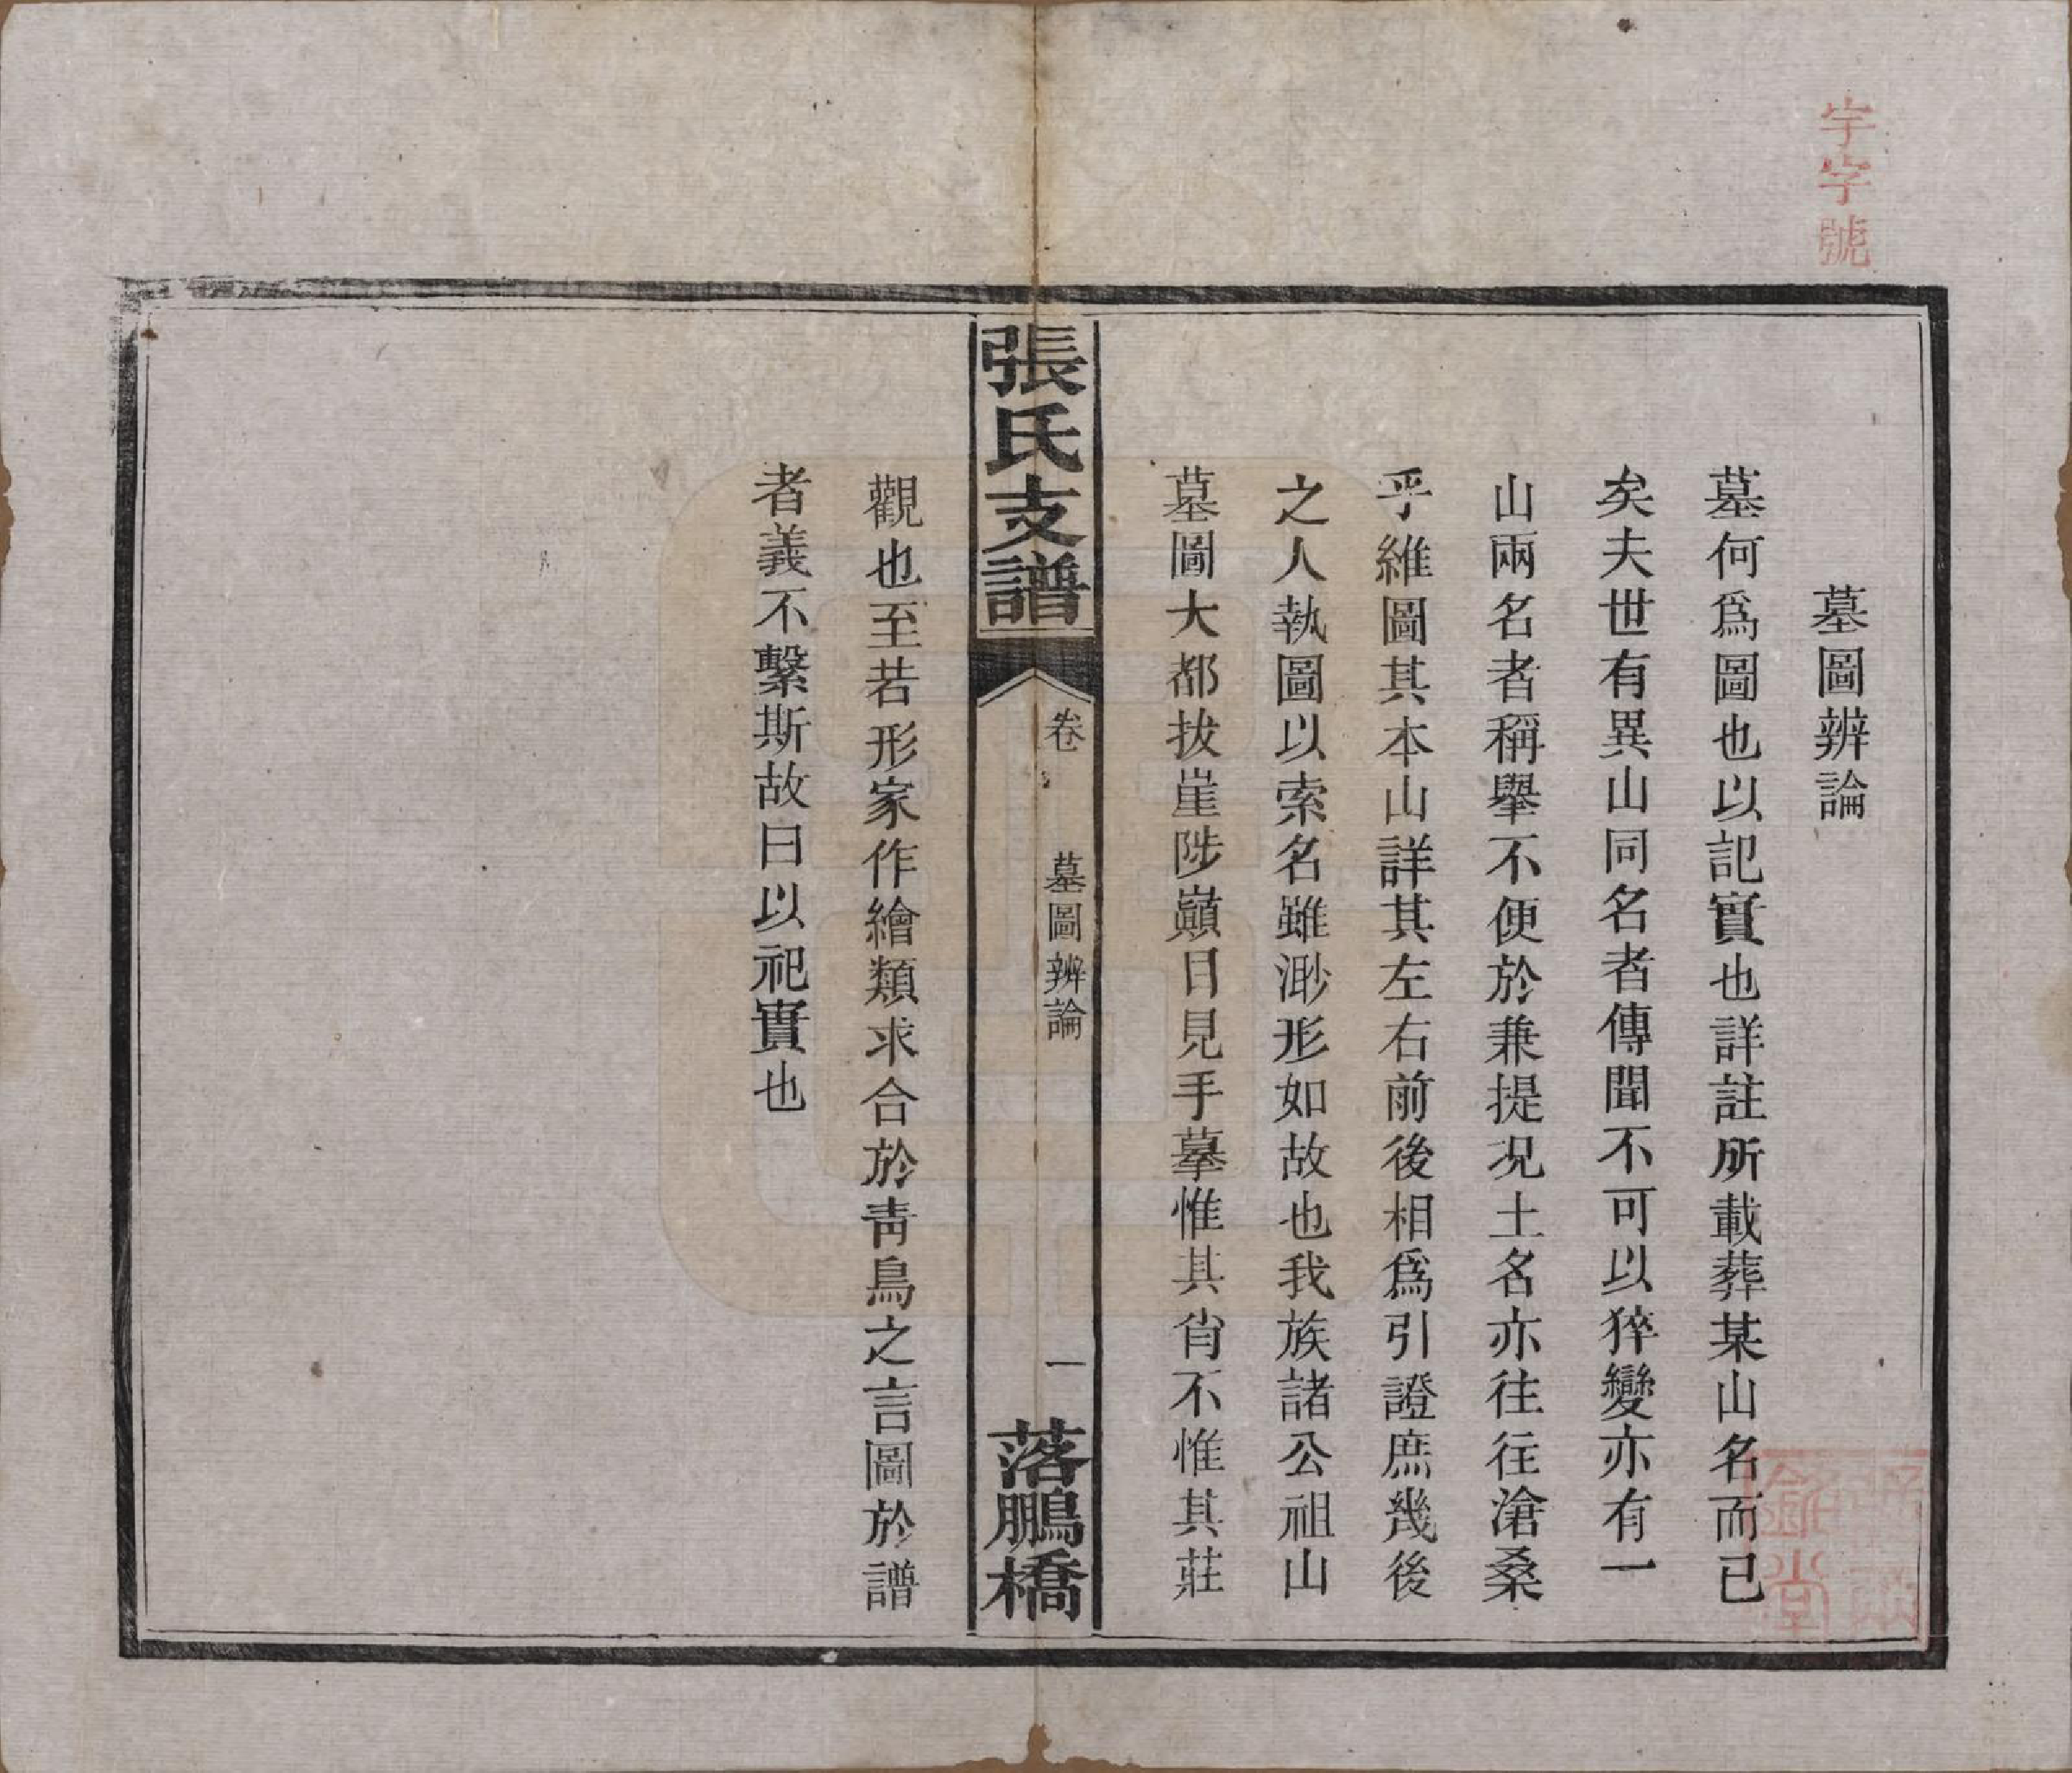 宇字號
墓圖辨論
墓何爲圖也以記實也詳註所載葬某山名而已
矣夫世有異山同名者傳聞不可以猝變亦有一
山兩名者稱舉不便於兼提况土名亦往往滄桑
乎維圖其本山詳其左右前後相爲引證庶幾後
之人執圖以索名雖渺形如故也我族諸公祖山
墓圖大都拔崖陟巔目見手摹惟其肖不惟其莊
張氏支譜
卷
墓圖辨論
一
落鵬橋
觀也至若形家作繪類求合於靑鳥之言圖於譜
者義不繫斯故曰以祀實也